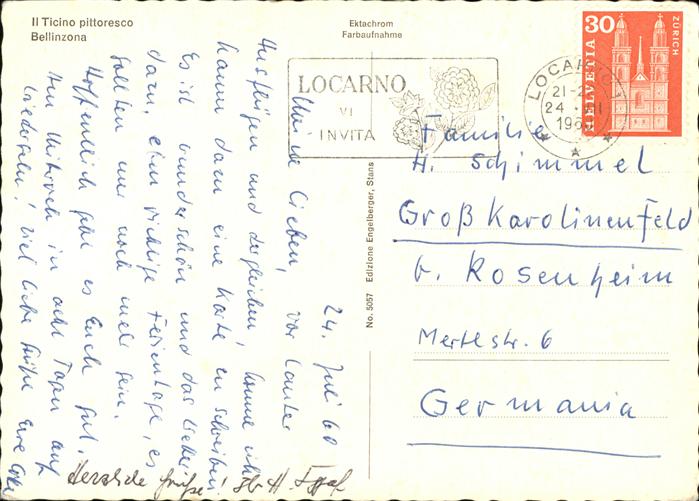 Il Ticino pittoresco
Bellinzona
Ektachrom
Farbaufnahme
LOCARNO
VI
INVITA
LOCARNO
21-2
24
19
30
HELVETIA
ZÜRICH
No. 5057 Edizione Engelberger, Stans
24. Juli 60
Meine Lieben, vor lauter
Ausflügen und dergleichen, komme ich
kaum dazu eine Karte zu schreiben
Es ist wunderschön und das Wetter
dazu, eben richtige Ferientage, es
sollten nur noch mehr sein.
Hoffentlich geht es Euch gut.
Am Mittwoch in acht Tagen auf
Wiedersehn! Viel liebe Grüße Eure
Herzliche Grüße!
Familie
H. Schimmel
Großkarolinenfeld
b. Rosenheim
Mertlstr. 6
Germania